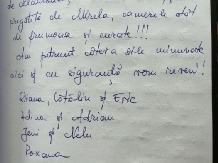 pregătite de Mirela, camerele atât
de frumoase și curate!!!
Am petrecut câteva zile minunate
aici și cu siguranță vom reveni!
Diana, Cătălin și Eric
Adina și Adrian
Jeni și Nelu
Roxana